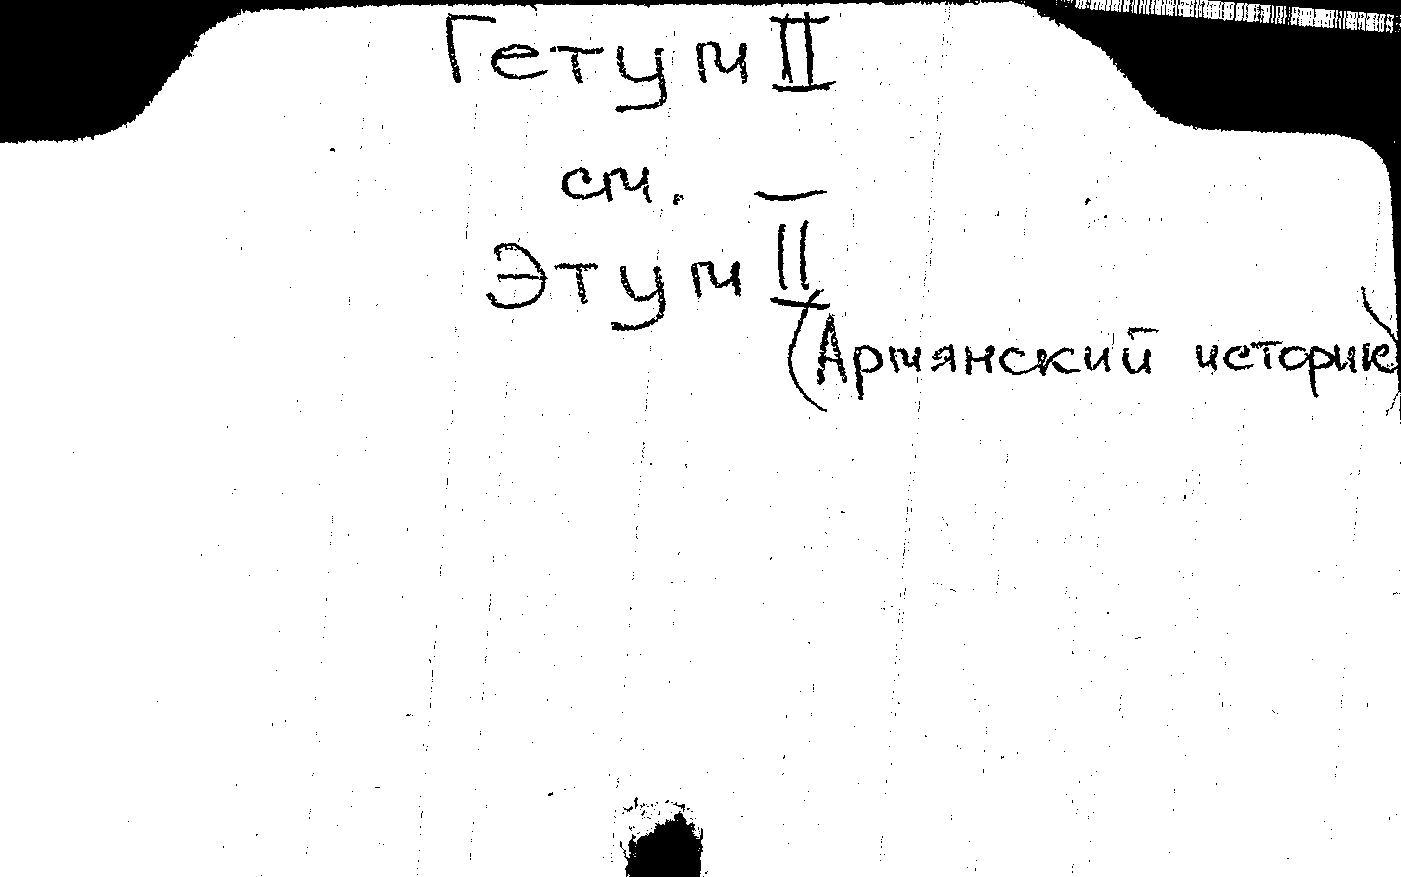 Гетум II
см.
Этум II
(Армянский историк)